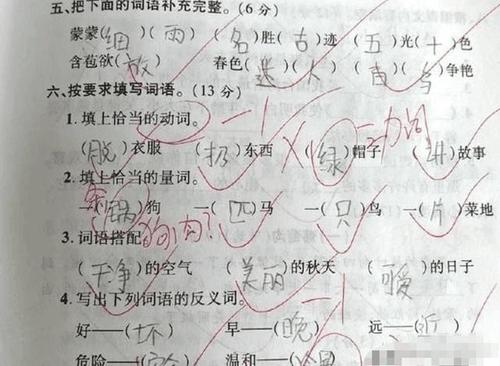 五、把下面的词语补充完整。(6分)
蒙蒙(细)(雨) (名)胜(古)迹 (五)光(十)色
含苞欲(放) 春色(迷)(人) (百)( )争艳
六、按要求填写词语。(13分)
1.填上恰当的动词。
-1 动词
(脱)衣服 (扔)东西 (绿)帽子 (讲)故事
2.填上恰当的量词。
一(锅)狗 一(匹)马 一(只)鸟 一(片)菜地
3.词语搭配 狗肉?
(干净)的空气 (美丽)的秋天 (暖)的日子
4.写出下列词语的反义词。 -1
好——(坏) 早——(晚) 远——(近)
危险——( ) 温和——( )